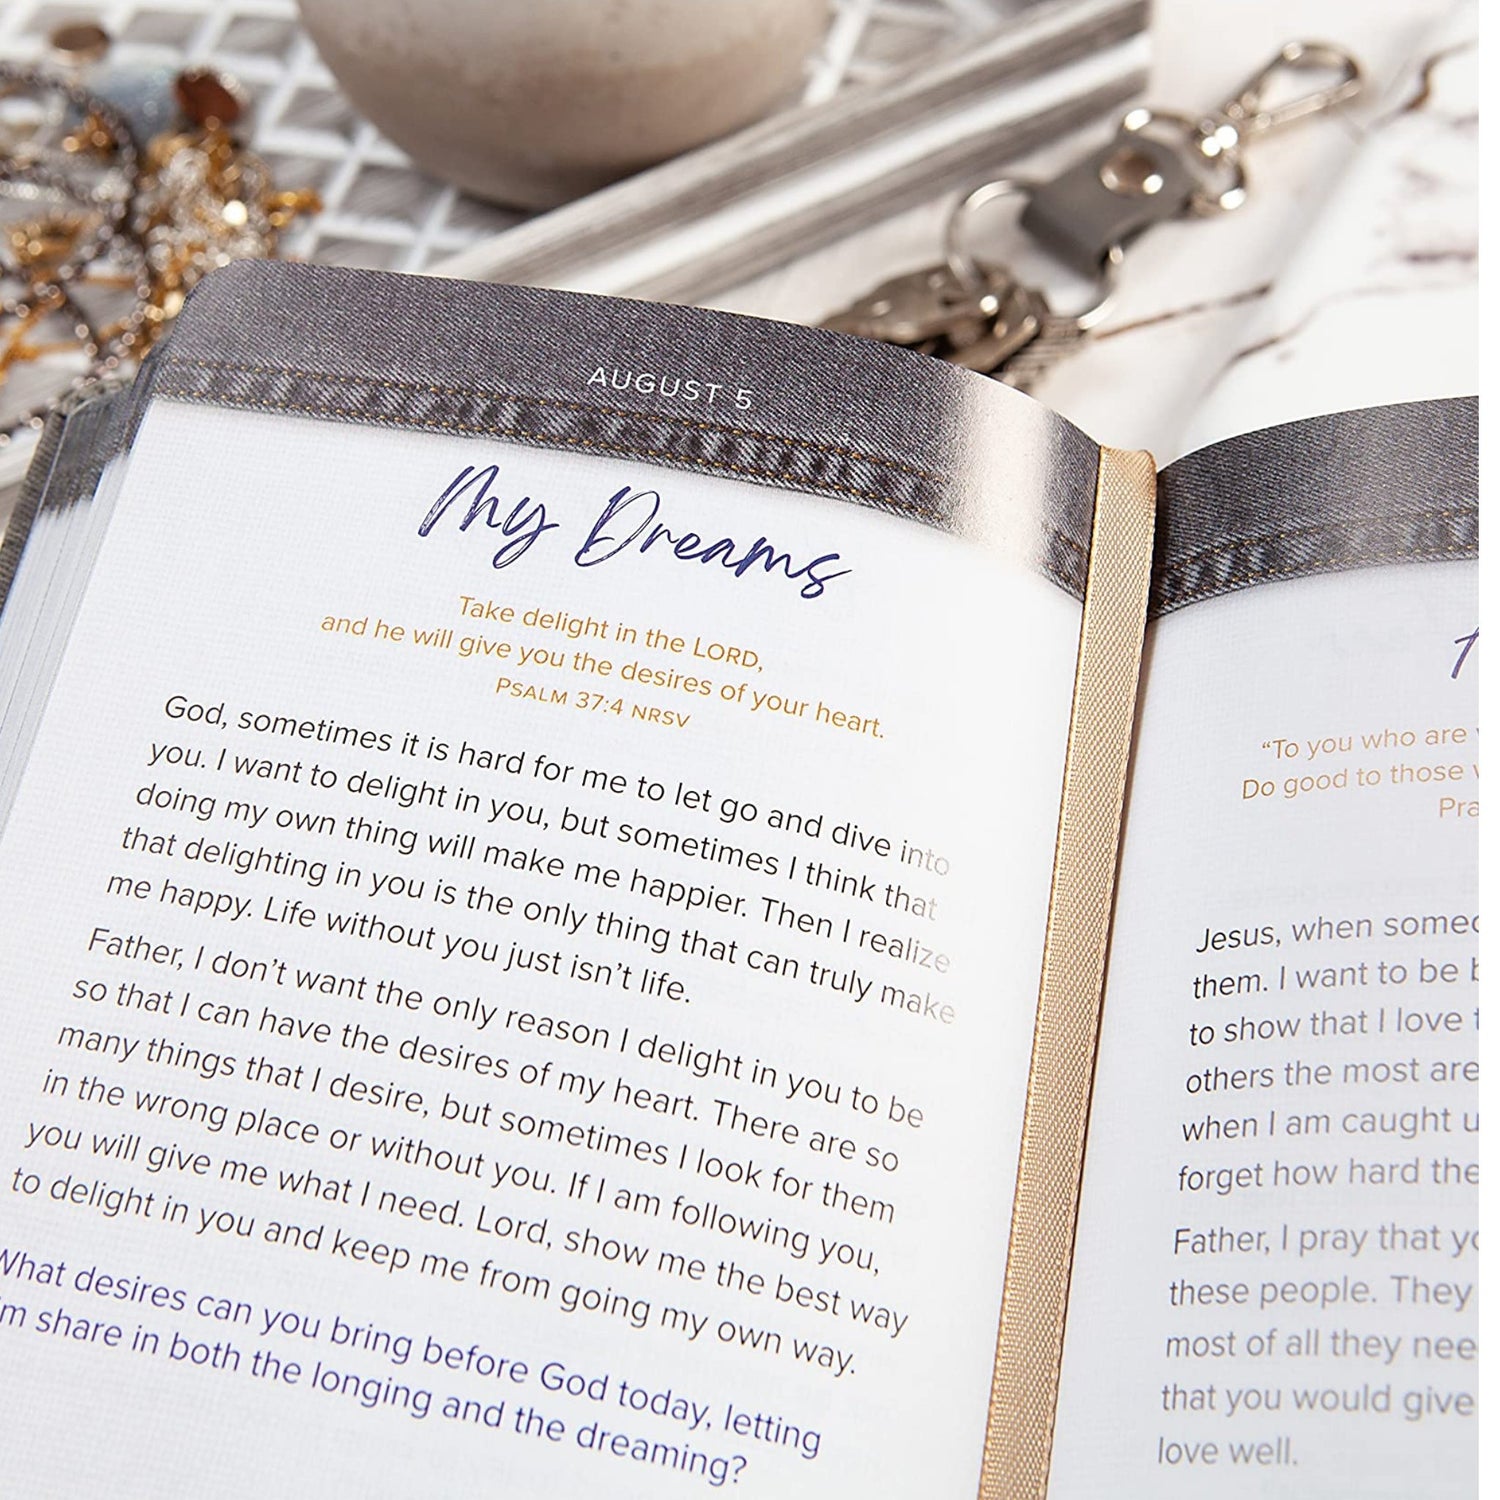 AUGUST 5
My Dreams
Take delight in the LORD,
and he will give you the desires of your heart.
PSALM 37:4 NRSV
God, sometimes it is hard for me to let go and dive into
you. I want to delight in you, but sometimes I think that
doing my own thing will make me happier. Then I realize
that delighting in you is the only thing that can truly make
me happy. Life without you just isn’t life.
Father, I don’t want the only reason I delight in you to be
so that I can have the desires of my heart. There are so
many things that I desire, but sometimes I look for them
in the wrong place or without you. If I am following you,
you will give me what I need. Lord, show me the best way
to delight in you and keep me from going my own way.
What desires can you bring before God today, letting
share in both the longing and the dreaming?
“To you who are
Do good to those
Jesus, when
them. I want to be
to show that I love
others the most are
when I am caught
forget how hard the
Father, I pray that
these people. They
most of all they
that you would give
love well.